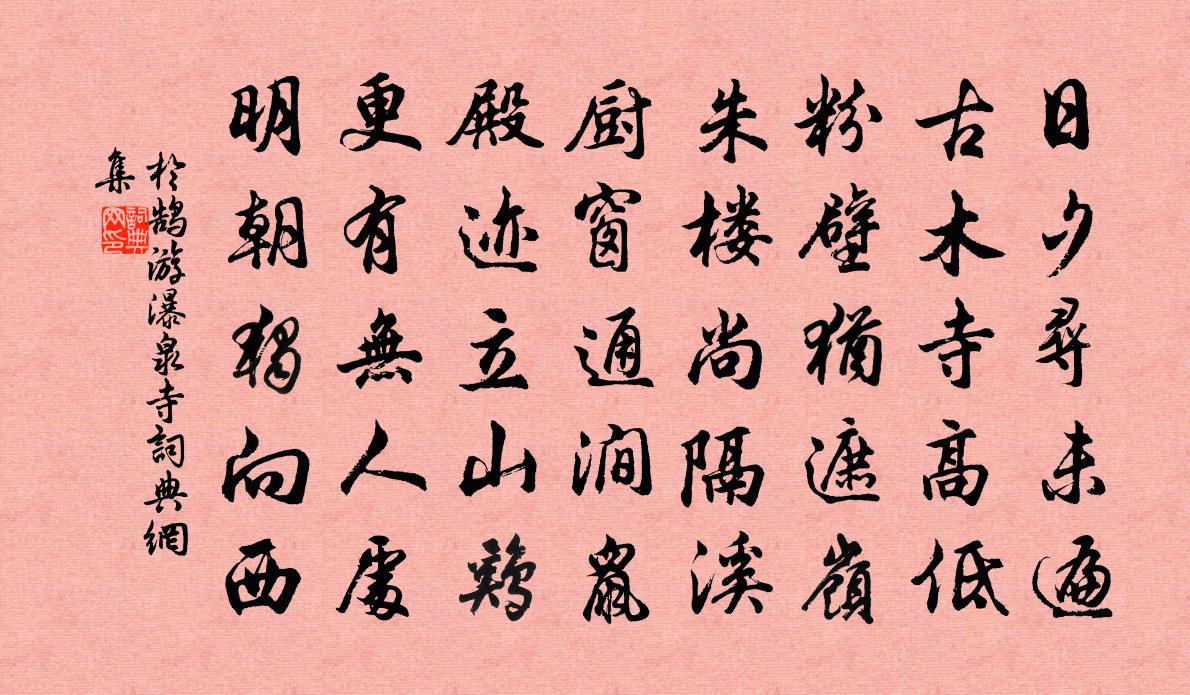 日夕尋未遍
古木寺高低
粉壁猶遮嶺
朱楼尚隔溪
厨窗通澗鼠
殿迹立山鷄
更有無人處
明朝獨向西
於鵠游瀑泉寺詞典網
集
詞典网印